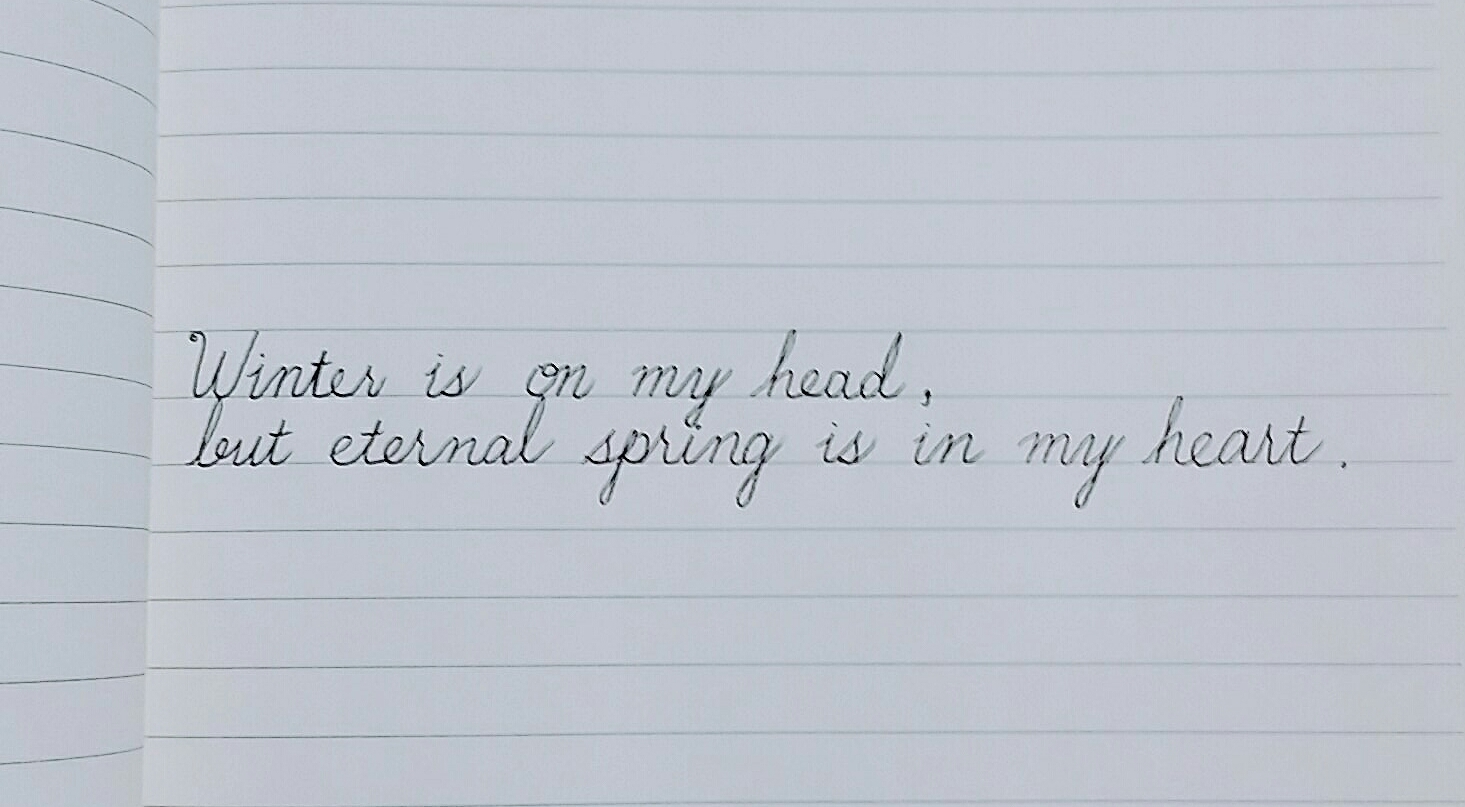 Winter is on my head,
but eternal spring is in my heart.